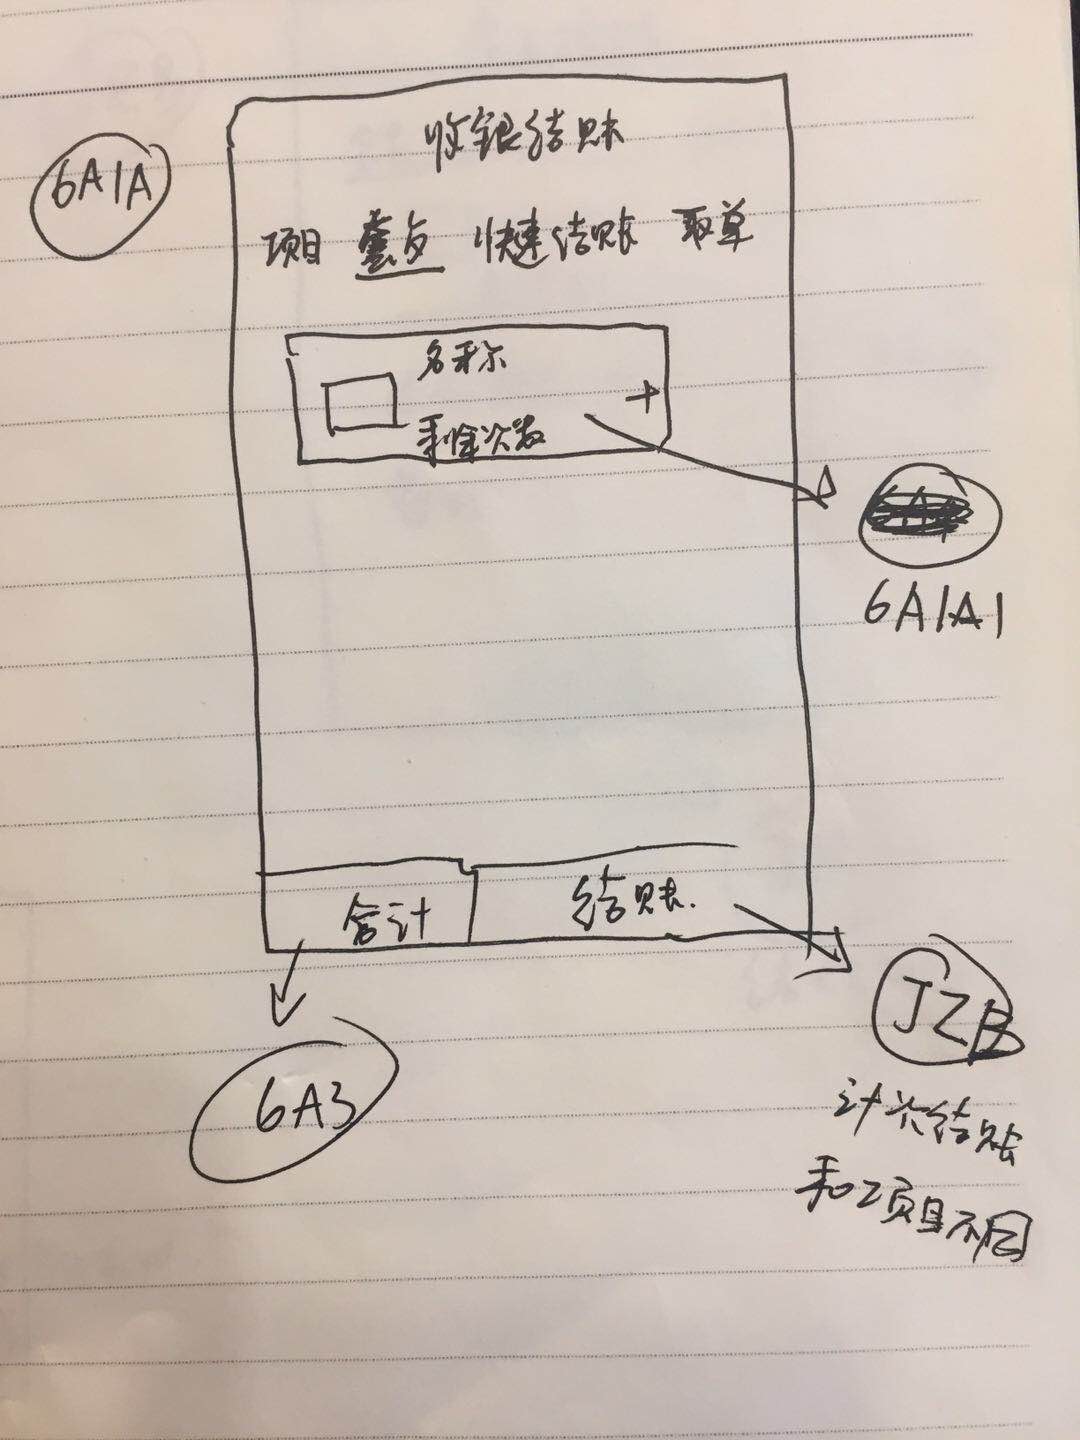 6A1A
收银结账
项目 快速结账 取单
名称
+
剩余次数
6A1A1
合计 结账
6A3
JZB
计次结账
和项目不同